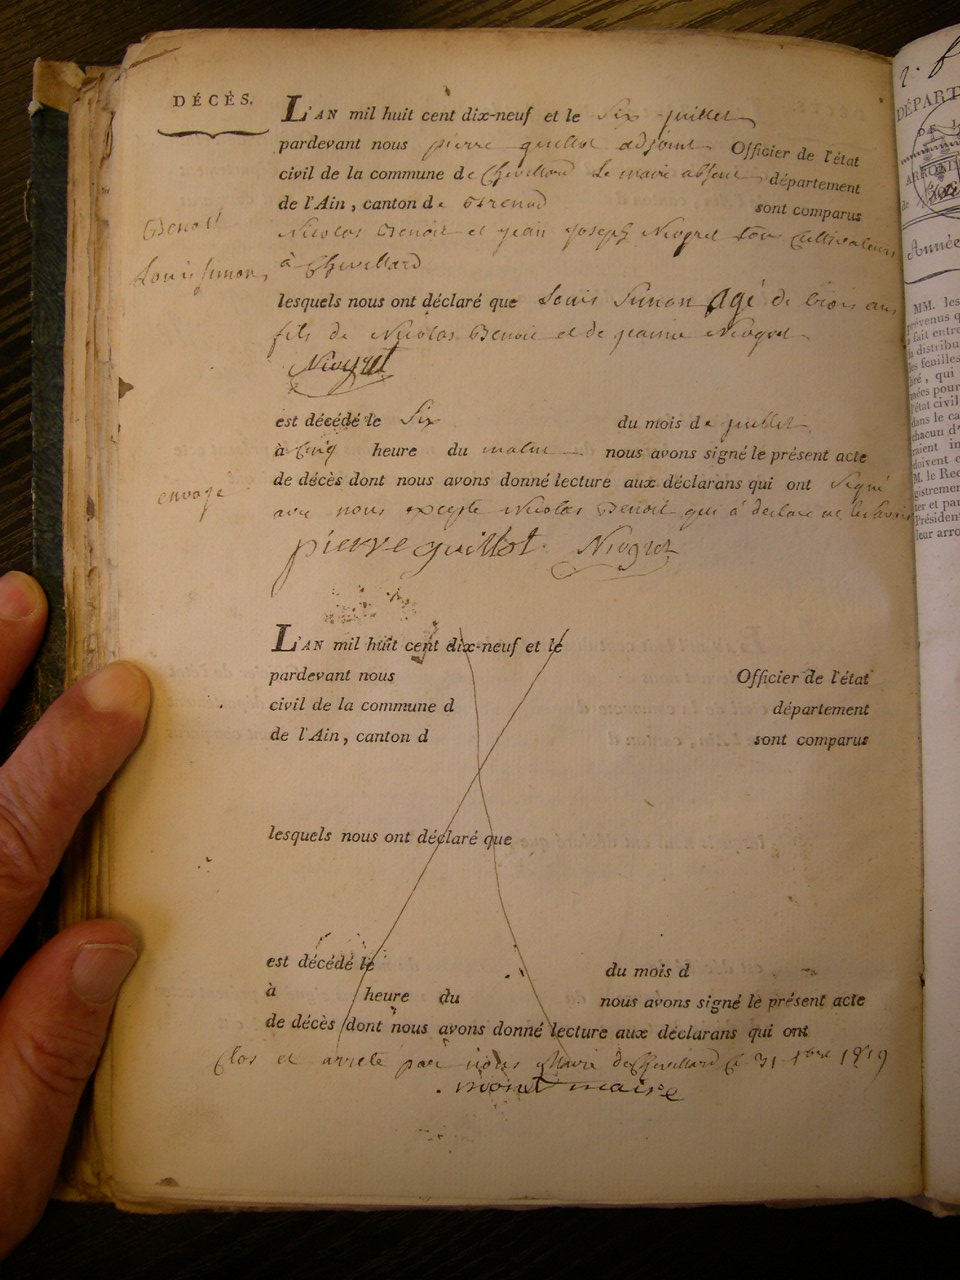 DÉCÈS.
L'AN mil huit cent dix-neuf et le Six juillet
pardevant nous pierre guillot adjoint Officier de l'état
civil de la commune de Chevillard Le maire absent département
de l'Ain, canton de Brenod sont comparus
Benoit
Nicolas Benoit et jean joseph Niogret tous Cultivateurs
Louis Simon
à Chevillard
lesquels nous ont déclaré que Louis Simon Agé de trois ans
fils de Nicolas Benoit et de jeanne Niogret
Niogret
est décédé le Six du mois de juillet
à Cinq heure du matin nous avons signé le présent acte
de décès dont nous avons donné lecture aux déclarans qui ont signé
envoyé
avec nous excepte Nicolas Benoit qui a declare ne le savoir
pierre guillot Niogret
L'AN mil huit cent dix-neuf et le
pardevant nous Officier de l'état
civil de la commune d département
de l'Ain, canton d sont comparus
lesquels nous ont déclaré que
est décédé le du mois d
à heure du nous avons signé le présent acte
de décès dont nous avons donné lecture aux déclarans qui ont
Clos et arrete par nous Maire de Chevillard le 31 Xbre 1819
maire
2. f
DÉPART
DE L
ARRONDI
Année
MM. les
prévenus q
fait entre
distribu
les feuilles
ré, qui
nées pour
l'état civil
dans le ca
chacun d'
raient in
doivent e
M. le Rec
gistremen
ter et par
Président
leur arro